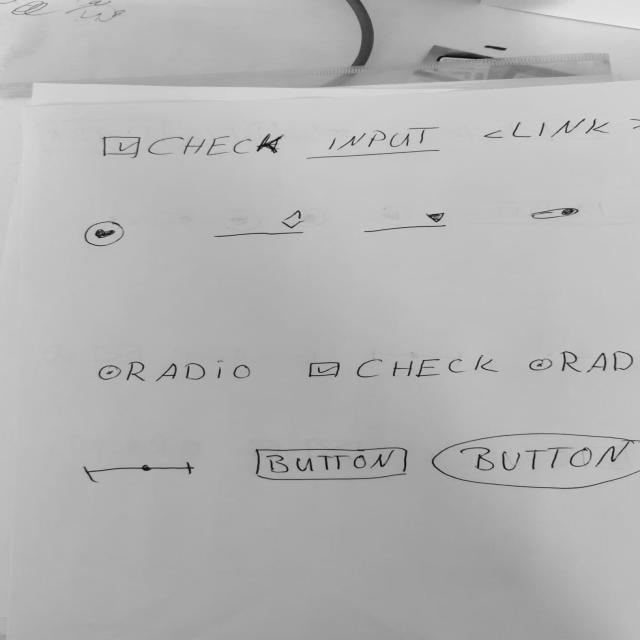 CHECK INPUT <LINK >
RADiO CHECK RAD
BUTTON BUTTON